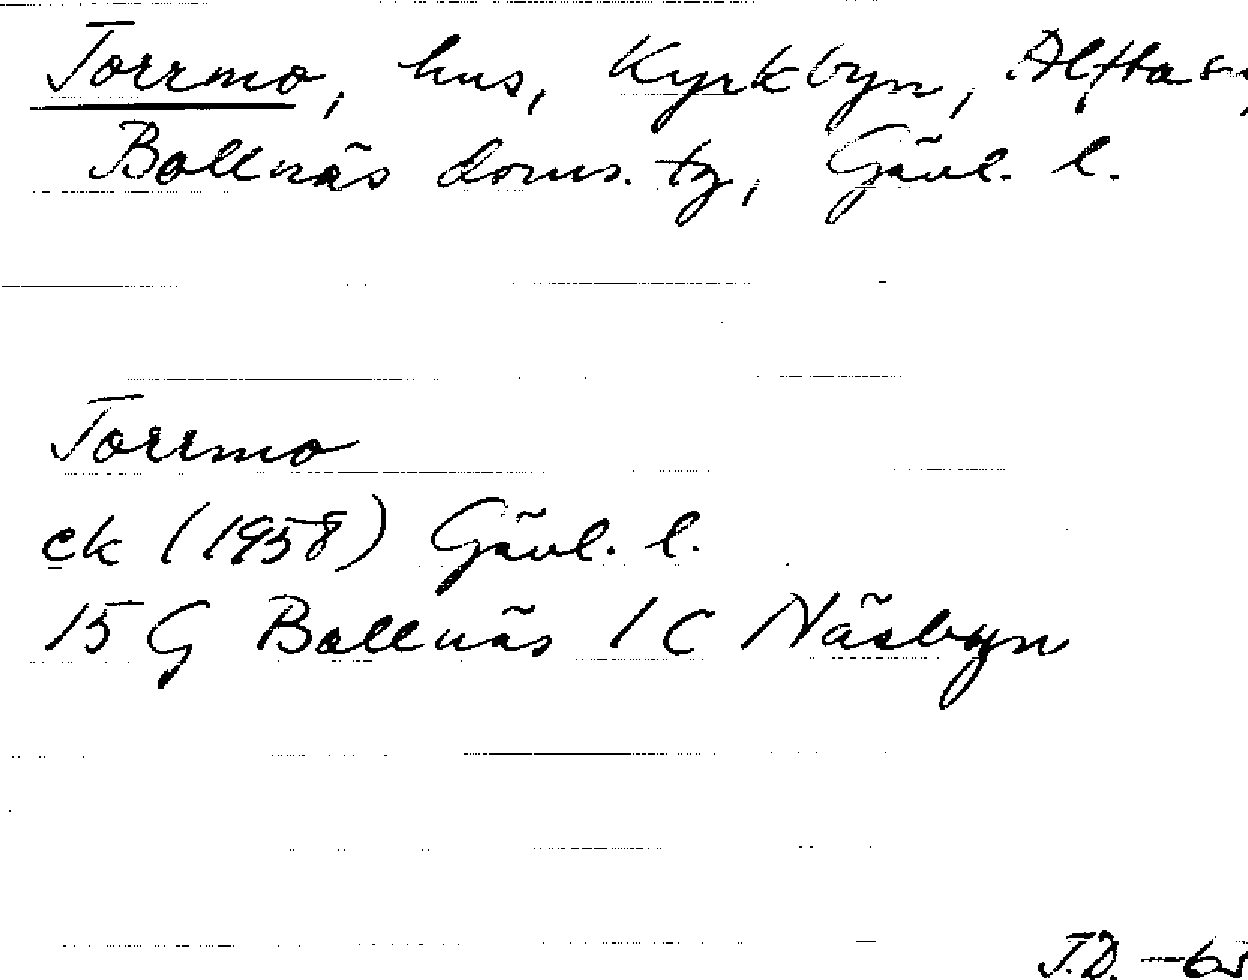 Torrmo, hus, Kyrkbyn, Alfta sn,
Bollnäs doms. tg, Gävl. l.
Torrmo
ek (1958) Gävl. l.
15 G Bollnäs 1 C Näsbyn
J.D. -63